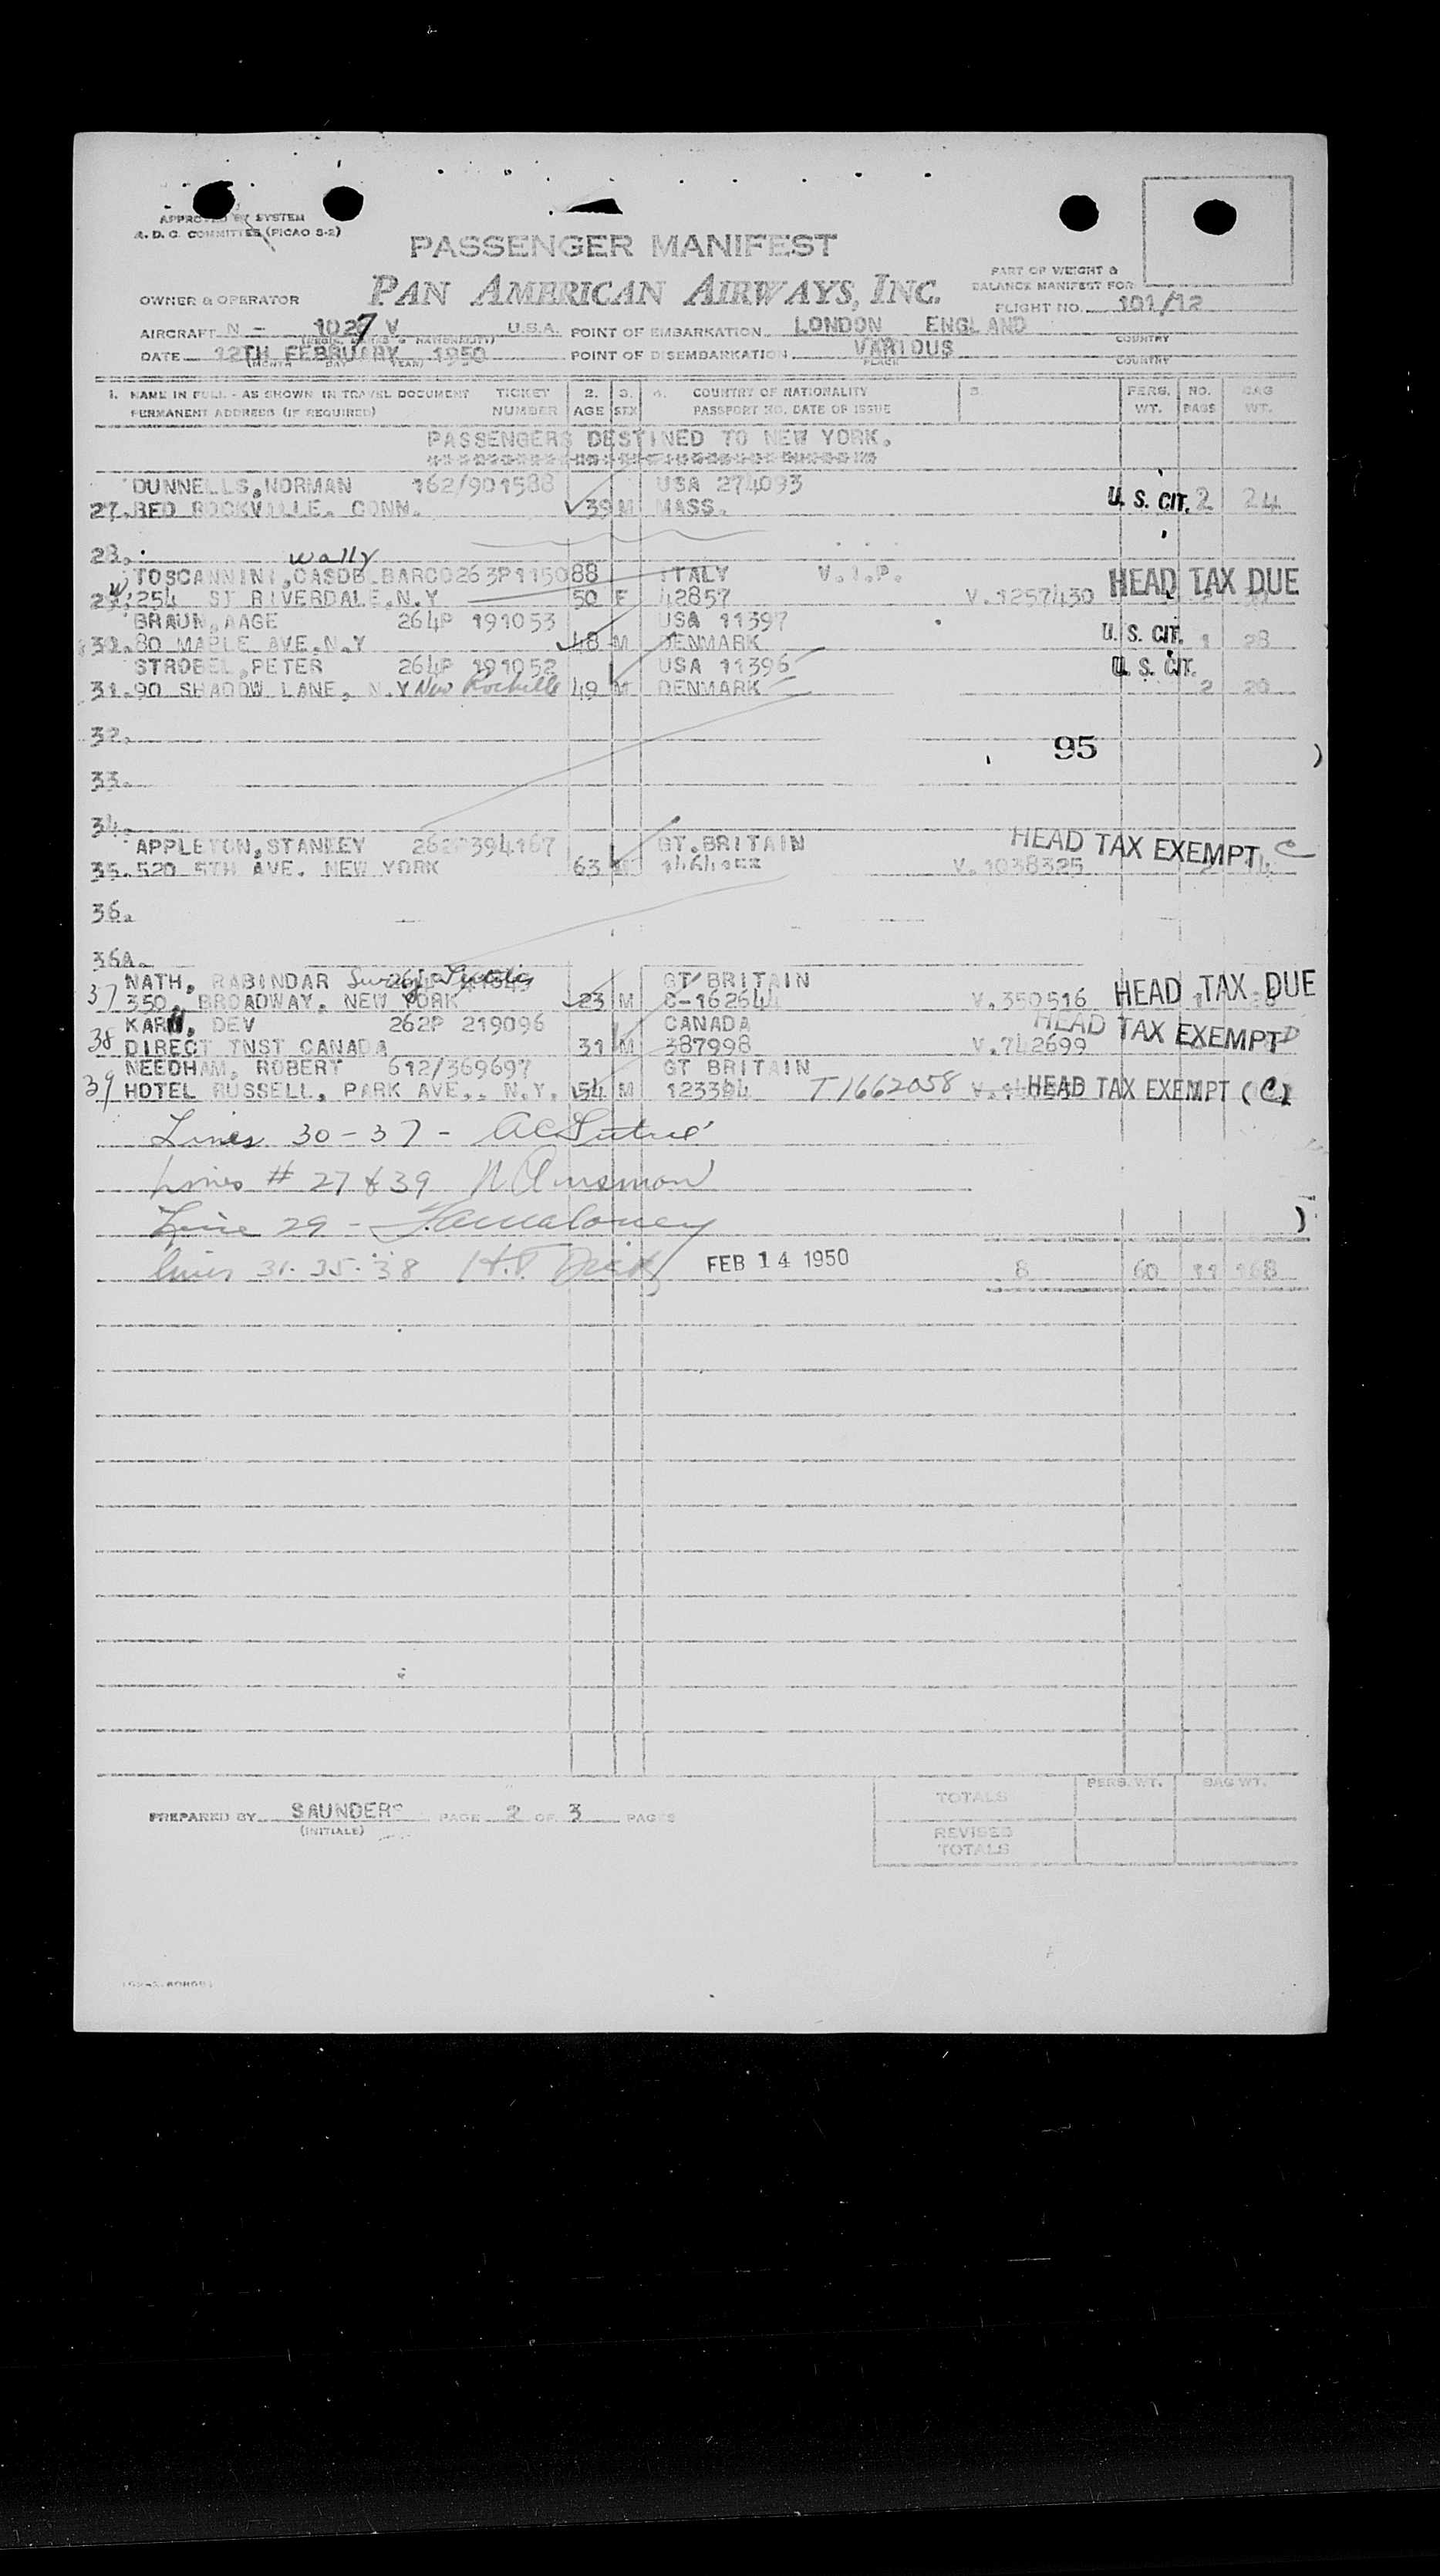 APPROVED BY SYSTEM
A. D. C. COMMITTEE (PICAO S-2)
PASSENGER MANIFEST
PAN AMERICAN AIRWAYS, INC.
PART OF WEIGHT &
BALANCE MANIFEST FOR
OWNER & OPERATOR FLIGHT NO. 101/12
AIRCRAFT N - 1027 V U.S.A. POINT OF EMBARKATION LONDON ENGLAND
COUNTRY
DATE 12TH FEBRUARY 1950 POINT OF DISEMBARKATION VARIOUS
(MONTH DAY YEAR) PLACE COUNTRY
1. NAME IN FULL - AS SHOWN IN TRAVEL DOCUMENT TICKET 2. 3. 4. COUNTRY OF NATIONALITY 5. PERS. NO. BAG
PERMANENT ADDRESS (IF REQUIRED) NUMBER AGE SEX PASSPORT NO. DATE OF ISSUE WT. BAGS WT.
PASSENGERS DESTINED TO NEW YORK.
DUNNELLS, NORMAN 162/901588 USA 274093
27. RED ROCKVILLE, CONN. 39 M MASS. U. S. CIT. 2 24
28.
Wally
TOSCANNINI, CASDB BARCO 263P115088 ITALY V.I.P. HEAD TAX DUE
29. 254 ST RIVERDALE, N.Y 50 F 42857 V.1257430
BRAUN, AAGE 264P 191053 USA 11397
30. 80 MAPLE AVE, N.Y 48 M DENMARK U. S. CIT. 1 28
STROBEL, PETER 264P 191052 USA 11396 U. S. CIT.
31. 90 SHADOW LANE, N.Y New Rochelle 49 M DENMARK 2 20
32.
95
33.
34.
APPLETON, STANLEY 262P394167 GT.BRITAIN HEAD TAX EXEMPT C
35. 520 5TH AVE. NEW YORK 63 V.1038325
36.
36A.
NATH, RABINDAR GT BRITAIN HEAD TAX DUE
37 350, BROADWAY, NEW YORK 23 M C-162644 V.350516
KARN, DEV 262P 219096 CANADA HEAD TAX EXEMPT
38 DIRECT TNST CANADA 31 M 387998 V.742699
NEEDHAM, ROBERT 612/369697 GT BRITAIN
39 HOTEL RUSSELL, PARK AVE., N.Y. 54 M 123394 T1662058 HEAD TAX EXEMPT (C)
Lines 30-37 -
Lines # 27 & 39
Line 29 - Maloney
lines 31. 35. 38 FEB 14 1950 8 60 11 168
PREPARED BY SAUNDERS PAGE 2 OF 3 PAGES
(INITIALS)
PERS. WT. BAG WT.
TOTALS
REVISED
TOTALS